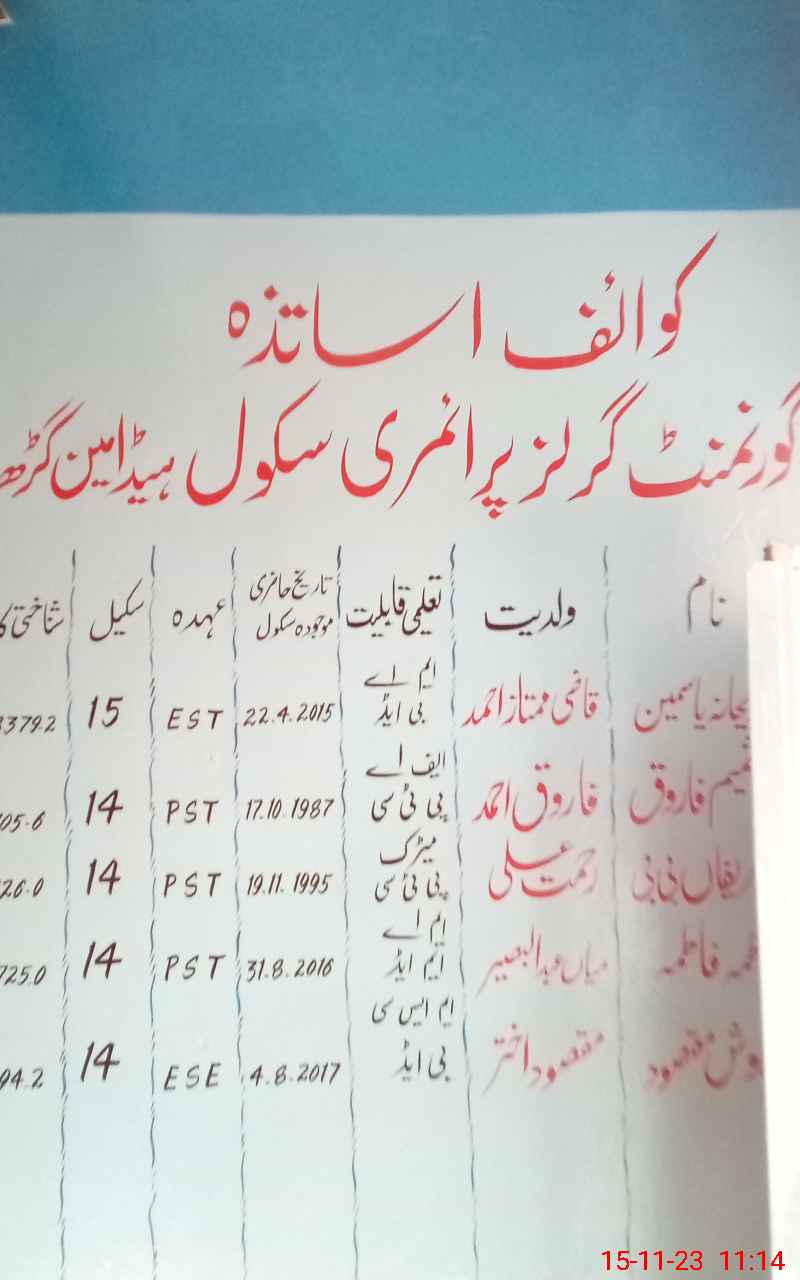 کوائف اساتذہ
گورنمنٹ گرلز پرائمری سکول ہیڈ امین گڑھ
نام ولدیت تعلیمی قابلیت تاریخ حاضری موجودہ سکول عہدہ سکیل شناختی کا
یاسمین قاضی ممتاز احمد ایم اے بی ایڈ 22.4.2015 EST 15 3379.2
فاروق فاروق احمد ایف اے پی ٹی سی 17.10.1987 PST 14 05-6
بی بی رحمت علی میٹرک پی ٹی سی 19.11.1995 PST 14 26-0
فاطمہ میاں عبدالبصیر ایم اے ایم ایڈ 31.8.2016 PST 14 725.0
مقصود مقصود اختر ایم ایس سی بی ایڈ 4.8.2017 ESE 14 94.2
15-11-23 11:14